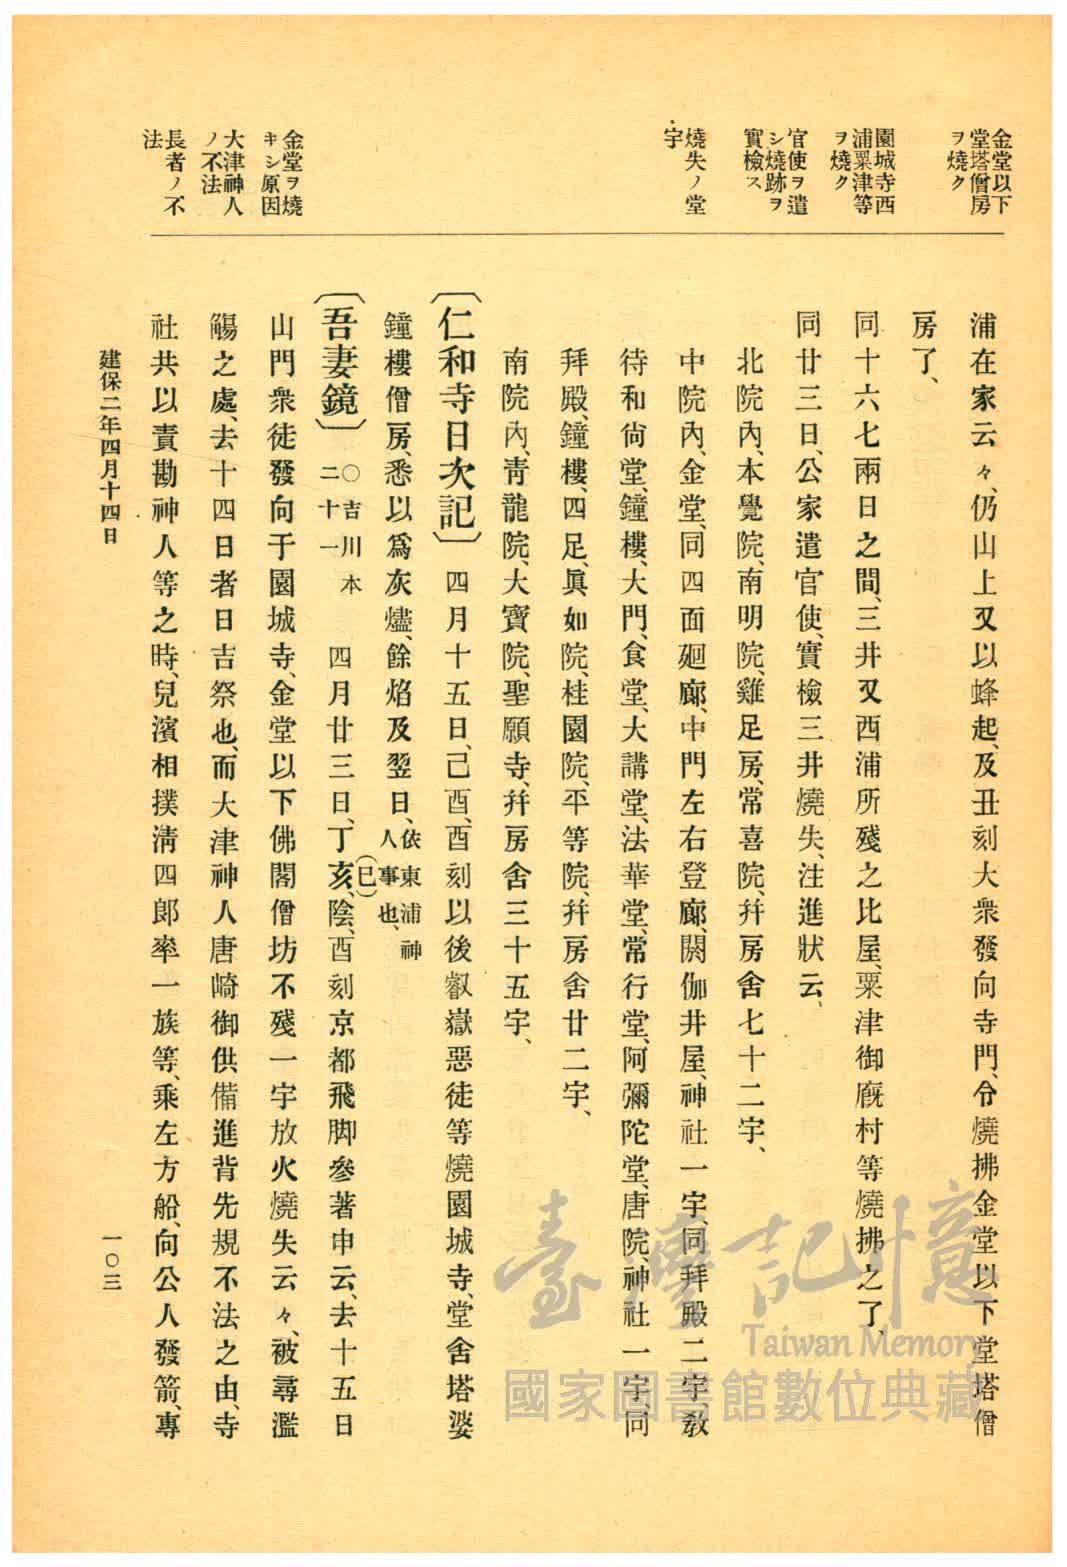 金堂以下
堂塔僧房
ヲ燒ク
園城寺西
浦粟津等
ヲ燒ク
官使ヲ遣
シ燒跡ヲ
實檢ス
燒失ノ堂
宇
金堂ヲ燒
キシ原因
大津神人
ノ不法
長者ノ不
法
浦在家云々、仍山上又以蜂起、及丑刻大衆發向寺門、令燒拂金堂以下堂塔僧
房了、
同十六七兩日之間、三井又西浦所殘之比屋、粟津御廐村等燒拂之了、
同廿三日、公家遣官使、實檢三井燒失、注進狀云、
北院內、本覺院、南明院、雞足房、常喜院、幷房舍七十二宇、
中院內、金堂、同四面廻廊、中門左右登廊、閼伽井屋、神社一宇、同拜殿二宇、敎
待和尙堂、鐘樓、大門、食堂、大講堂、法華堂、常行堂、阿彌陀堂、唐院、神社一宇、同
拜殿、鐘樓、四足、眞如院、桂園院、平等院、幷房舍廿二宇、
南院內、靑龍院、大寶院、聖願寺、幷房舍三十五宇、
〔仁和寺日次記〕四月十五日、己酉、酉刻以後叡嶽惡徒等燒園城寺、堂舍塔婆
鐘樓僧房、悉以爲灰燼、餘焰及翌日、依東浦神人事也、
〔吾妻鏡〕○吉川本二十一 四月廿三日、丁亥(巳)、陰、酉刻京都飛脚參著申云、去十五日
山門衆徒發向于園城寺、金堂以下佛閣僧坊不殘一宇放火燒失云々、被尋濫
觴之處、去十四日者日吉祭也、而大津神人唐崎御供備進背先規不法之由、寺
社共以責勘神人等之時、兒濱相撲淸四郎率一族等、乘左方船、向公人發箭、專
建保二年四月十四日
一〇三
臺灣記憶
Taiwan Memory
國家圖書館數位典藏